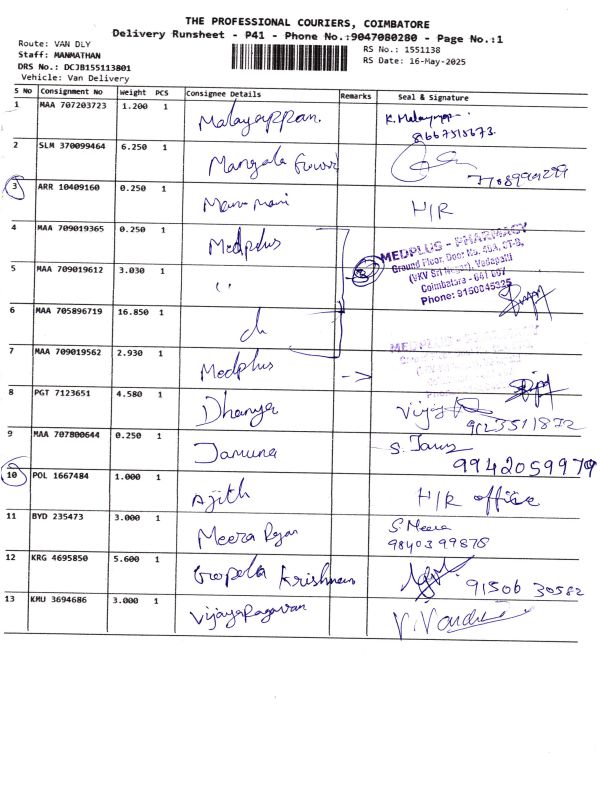 THE PROFESSIONAL COURIERS, COIMBATORE
Delivery Runsheet - P41 - Phone No.:9047080280 - Page No.:1
Route: VAN DLY
RS No.: 1551138
Staff: MANMATHAN
RS Date: 16-May-2025
DRS No.: DCJB155113801
Vehicle: Van Delivery
S No Consignment No Weight PCS Consignee Details Remarks Seal & Signature
1 MAA 707203723 1.200 1 Malayappan. K. Malayappa
8667515673
2 SLM 370099464 6.250 1 Mangala
3 ARR 10409160 0.250 1 Mano mani H/R
4 MAA 709019365 0.250 1 Medplus
MEDPLUS - PHARMACY
Ground Floor, Door No. 48A, CT-B,
(VKV Sri Nagar), Vadapalli
Coimbatore - 641 007
Phone: 9150845325
5 MAA 709019612 3.030 1 "
6 MAA 705896719 16.850 1 do
7 MAA 709019562 2.930 1 Medplus -->
8 PGT 7123651 4.580 1 Dhanya
9123511872
9 MAA 707800644 0.250 1 Jamuna S. Jamu
9942059979
10 POL 1667484 1.000 1 Ajith H/R office
11 BYD 235473 3.000 1 Meera Rajan S. Meera
98403 99875
12 KRG 4695850 5.600 1 Gopala Krishnan 91506 30582
13 KMU 3694686 3.000 1 Vijayaragavan